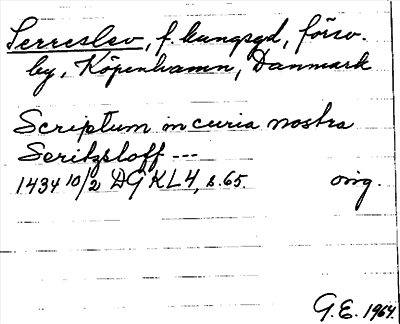 Serreslev, f. kungsgd, försv.
by, Köpenhamn, Danmark
Scriptum in curia nostra
Seritzsloff ---
1434 10/2 DG KL 4, s. 65. orig.
G.E. 1964.